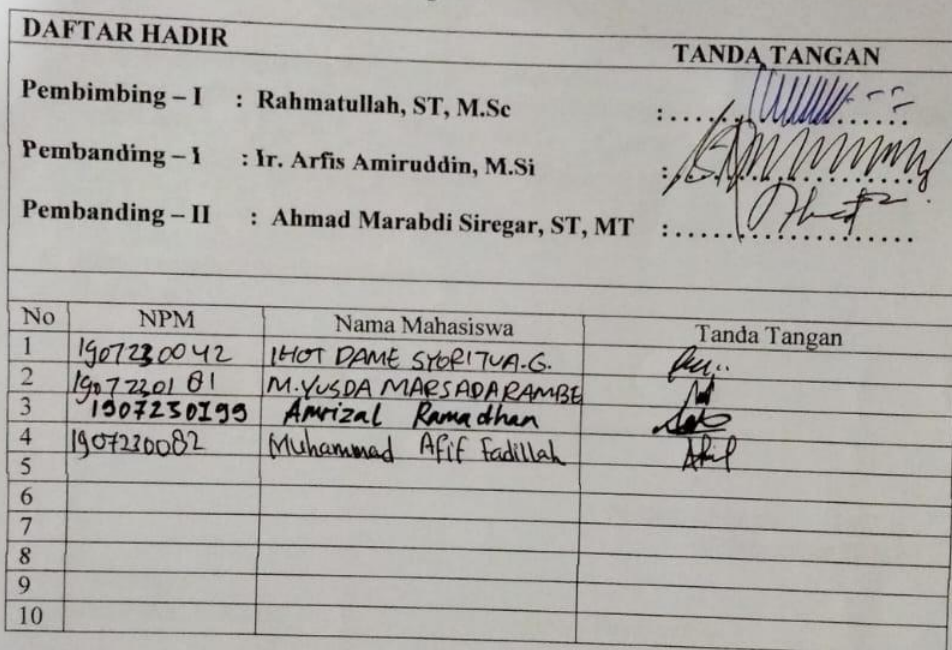 DAFTAR HADIR
TANDA TANGAN
Pembimbing – I : Rahmatullah, ST, M.Sc :..................
Pembanding – I : Ir. Arfis Amiruddin, M.Si :..................
Pembanding – II : Ahmad Marabdi Siregar, ST, MT :..................
No NPM Nama Mahasiswa Tanda Tangan
1 1907230042 IHOT DAME SYORITUA.G.
2 1907230181 M.YUSDA MARSADARAMBE
3 1907230199 Amrizal Ramadhan
4 1907230082 Muhammad Afif Fadillah
5
6
7
8
9
10